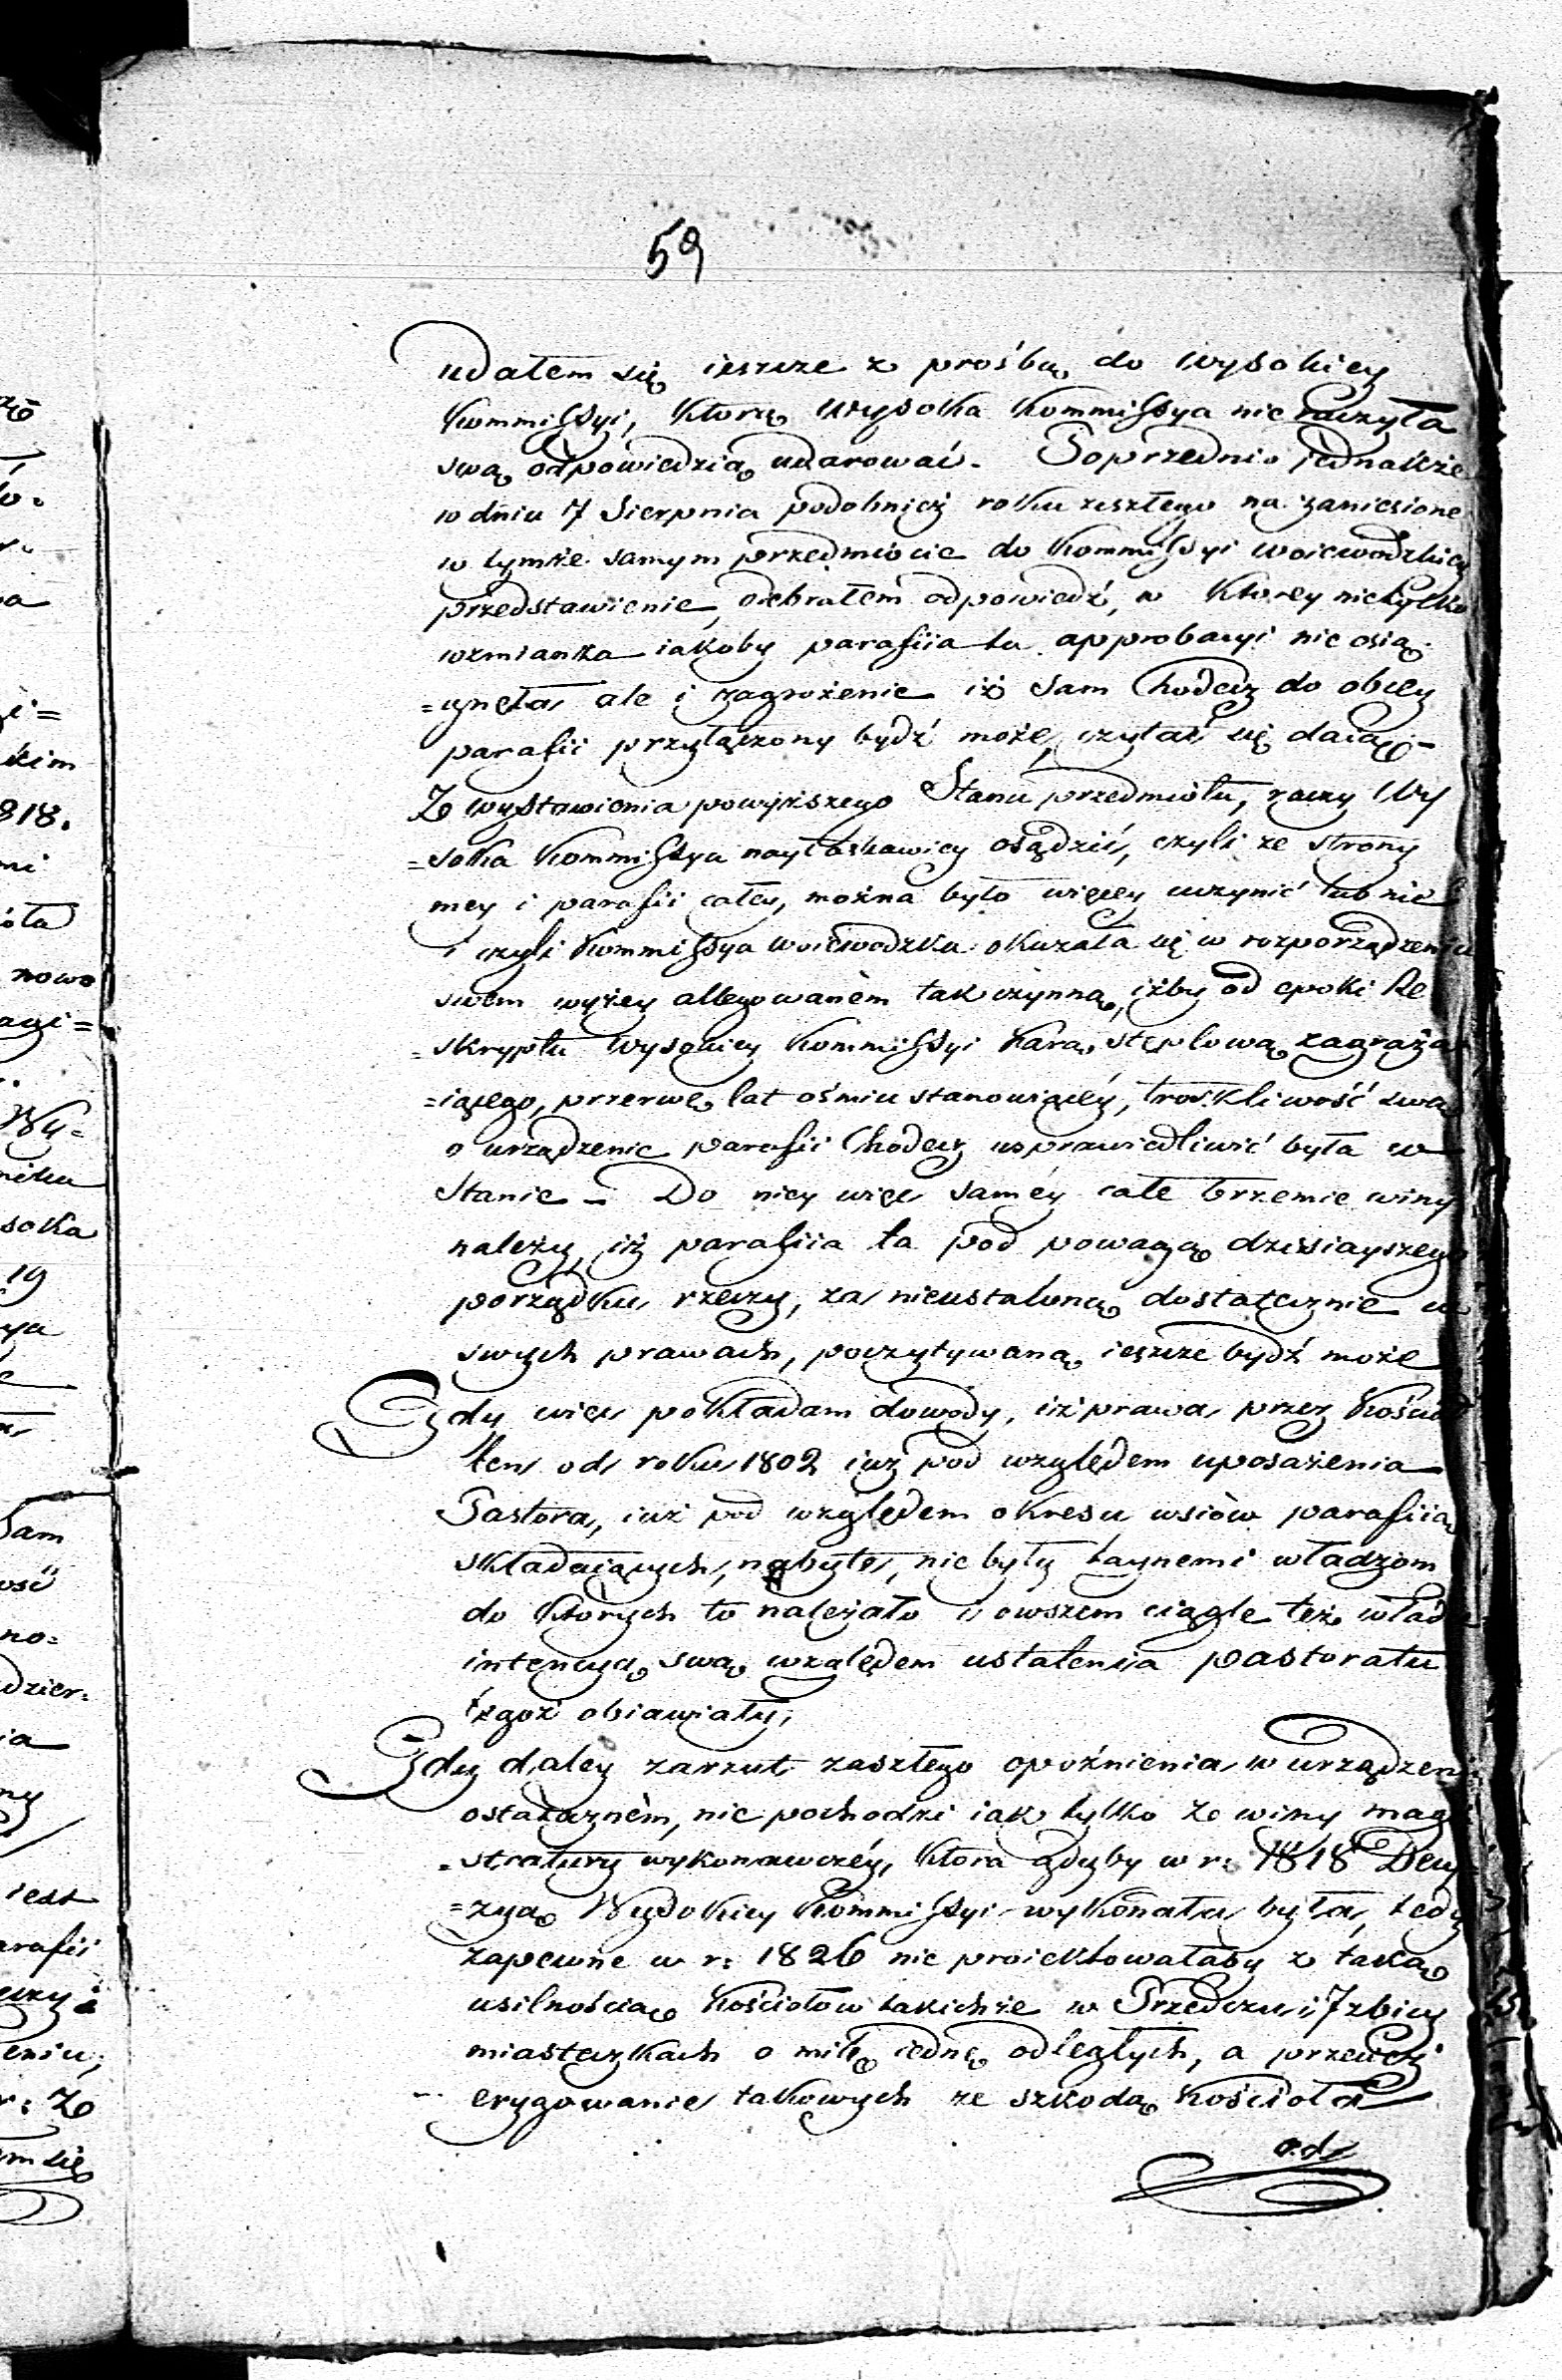 59
udałem się ieszcze z prośbą do Wysokiey
Kommissyi, którą Wysoka Kommissya nie raczyła
swą odpowiedzią udarować. Poprzednio jednakże
w dniu 7 Sierpnia podobnież roku zeszłego na zaniesione
w tymże samym przedmiocie do Kommissyi woiewodzkiey
przedstawienie, odebrałem odpowiedź, w ktorey nietylko
wzmianka iakoby parafiia ta approbacyi nie osią-
=gnęła, ale i zagrożenie iż sam Chodecz do obcey
parafii przyłączony bydź może, czytać się daią.-
Z wystawienia powyższego Stanu przedmiotu, raczy Wy
=soka Kommissya nayłaskawiey osądzić, czyli ze strony
mey i parafii całey, można było więcey uczynić lub nie
i czyli Kommissya woiewodzka okazała się w rozporządzeniu
swem wyżey allegowaném tak czynną, iżby od epoki Re
=skryptu Wysokiey Kommissyi karą stęplową zagraża
=iącego, przerwę lat ośmiu stanowiącéy, troskliwość swą
o urządzenie parafii Chodecz usprawiedliwić była w
Stanie - Do niey więc saméy całe brzemie winy
należy, iż parafiia ta pod powagą dzisiayszego
porządku rzeczy, za nieustaloną dostatecznie w
swych prawach, poczytywaną ieszcze bydź może
Gdy więc pokładam dowody, iż prawa przez Kościoł
ten od roku 1802 iuż pod względem uposażenia
Pastora, iuż pod względem okresu wsiów parafiią
składaiących, nabyte, nie były taynemi władzom
do ktorych to należało i owszem ciągle też władze
intencyą swą względem ustalenia pastoratu
tegoż obiawiały;
Gdy daley zarzut zaszłego opoźnienia w urządzeniu
ostateczném, nie pochodzi iak tylko ze winy magi
=stratury wykonawczéy, ktora gdyby w r: 1818 Decy
=zyą Wysokiey Kommissyi wykonała była, tedy
zapewne w r: 1826 nie proiektowałaby z taką
usilnością Kościołow takichże w Przedczu i Izbicy
miasteczkach o milę iednę odległych, a przecież
erygowanie takowych ze szkodą Kościoła
od